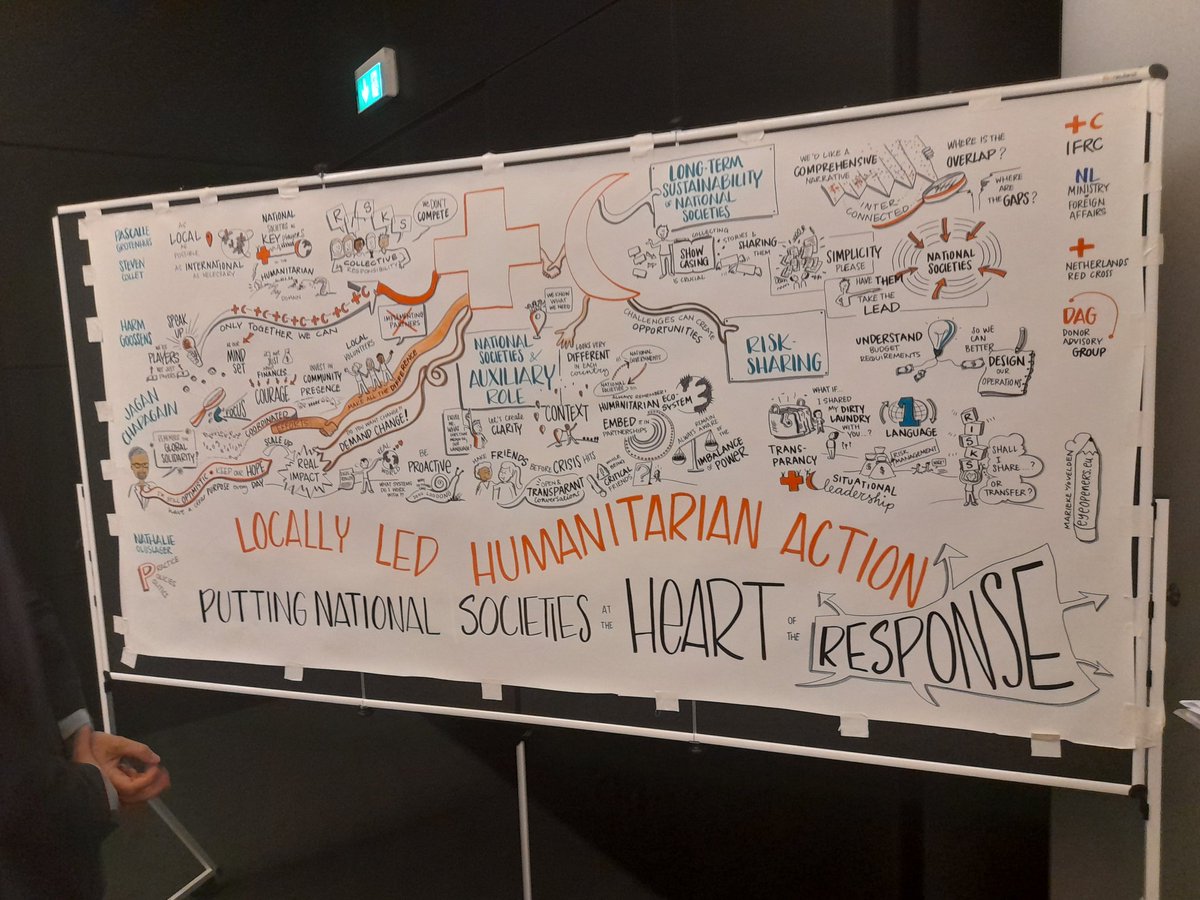 PASCALLE
GROTENHUIS
STEVEN
COLLET
AS
LOCAL
AS
POSSIBLE
AS INTERNATIONAL
AS NECESSARY
NATIONAL
SOCIETIES AS
KEY PLAYERS
IN THE
HUMANITARIAN
DOMAIN
WE DON'T
COMPETE
COLLECTIVE
RESPONSIBILITY
ONLY TOGETHER WE CAN
HARM
GOOSSENS
SPEAK
UP
PLAYERS
NOT JUST
MIND
SET
IT'S NOT JUST
FINANCES
COURAGE
INVEST IN
COMMUNITY
PRESENCE
LOCAL
VOLUNTEERS
IMPLEMENTING
PARTNERS
MAKE ALL THE DIFFERENCE
JAGAN
CHAPAGAIN
FOCUS
COORDINATED
EFFORTS
REMEMBER THE
GLOBAL
SOLIDARITY!
SCALE UP
REAL
IMPACT
DO YOU WANT CHANGE?
DEMAND CHANGE!
I'M STILL OPTIMISTIC
KEEP OUR HOPE
HAVE A CLEAR PURPOSE EVERY DAY
WHAT SYSTEMS
DO I WORK
WITH?
NATHALIE
OLIJSLAGER
PRACTICE
POLICIES
POLITICS
WE KNOW
WHAT WE
NEED
NATIONAL
SOCIETIES &
AUXILIARY
ROLE
LOOKS VERY
DIFFERENT
IN EACH
COUNTRY
NATIONAL
GOVERNMENTS
NATIONAL
SOCIETIES
LET'S CREATE
CLARITY
CONTEXT
ALWAYS REMEMBER!
HUMANITARIAN ECO
SYSTEM
EMBED IT IN
PARTNERSHIPS
ALWAYS REMAIN
AWARE
THE
IMBALANCE
OF POWER
BE
PROACTIVE
MAKE FRIENDS
BEFORE CRISIS HITS
OPEN &
TRANSPARANT
CONVERSATIONS
BRING
CRITICAL
FRIENDS
LONG-TERM
SUSTAINABILITY
OF NATIONAL
SOCIETIES
COLLECTING
STORIES &
SHARING
THEM
SHOW
CASING
IS CRUCIAL
CHALLENGES CAN CREATE
OPPORTUNITIES
WE'D LIKE A
COMPREHENSIVE
NARRATIVE
INTER
CONNECTED
WHERE IS THE
OVERLAP?
WHERE
ARE
THE GAPS?
SIMPLICITY
PLEASE
NATIONAL
SOCIETIES
HAVE THEM
TAKE THE
LEAD
RISK-
SHARING
UNDERSTAND
BUDGET
REQUIREMENTS
SO WE
CAN
BETTER
DESIGN
OUR
OPERATIONS
WHAT IF...
I SHARED
MY DIRTY
LAUNDRY
WITH
YOU...?
TRANS-
PARANCY
1
LANGUAGE
RISK
MANAGEMENT
SITUATIONAL
leadership
RISKS
SHALL
I
SHARE...?
OR
TRANSFER?
IFRC
NL
MINISTRY
FOREIGN
AFFAIRS
NETHERLANDS
RED CROSS
DAG
DONOR
ADVISORY
GROUP
eyeopeners.eu
LOCALLY LED HUMANITARIAN ACTION
PUTTING NATIONAL SOCIETIES AT THE HEART OF THE RESPONSE